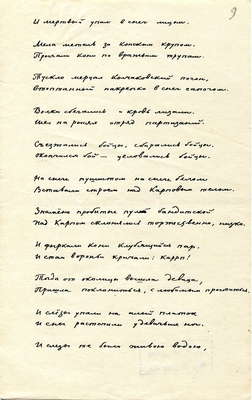 9
И мертвый упал в снег лицом.
Мела метель за конским крупом.
Причали кони по вражьим трупам.
Тускло мерцал Колчаковский погон,
Втоптанный накрепко в снег сапогом.
Волки сбежались и кровь лизали.
Шел на рысях отряд партизанский.
Съезжались бойцы, сбирались бойцы.
Окончился бой — целовались бойцы.
На снеге пушистом на снеге белом
Вставали строем над Карповым телом.
Знамёна пробитые пулей бандитской
Над Карпом склонялись торжественно, низко.
И фыркали кони клубящийся пар.
И стаи вороньи кричали: карр!
Тогда от околицы вышла девица,
Пришла поклониться, с любимым проститься.
И слёзы упали на алый платок
И снег растопили у девичьих ног.
И слезы те были живою водою,